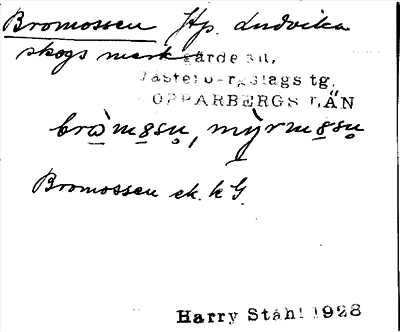 Bromossen Hp. Ludvika
skogsmark gärde sn,
Västerbergslags tg.
KOPPARBERGS LÄN
bròmosn, mỳrmosn
Bromossen ek. k G.
Harry Ståhl 1928